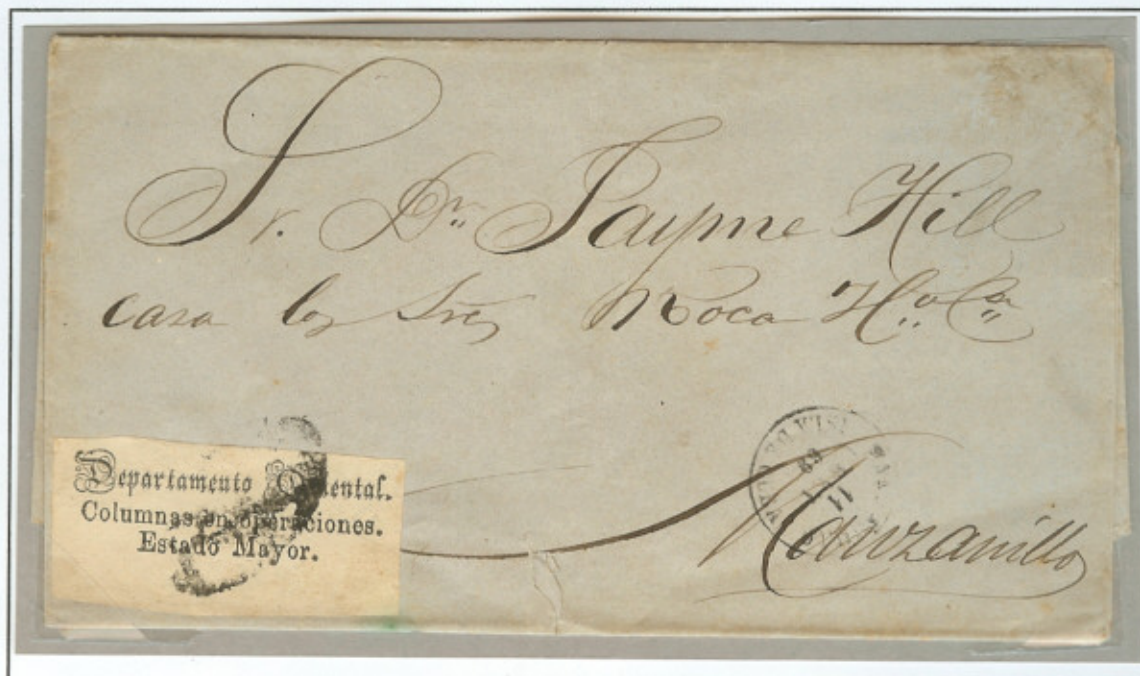 Sr. Dn. Jayme Hill
casa los Sres Roca H.o Ca
Manzanillo
Departamento Oriental.
Columnas en operaciones.
Estado Mayor.
ISLA DE CUBA
11
69